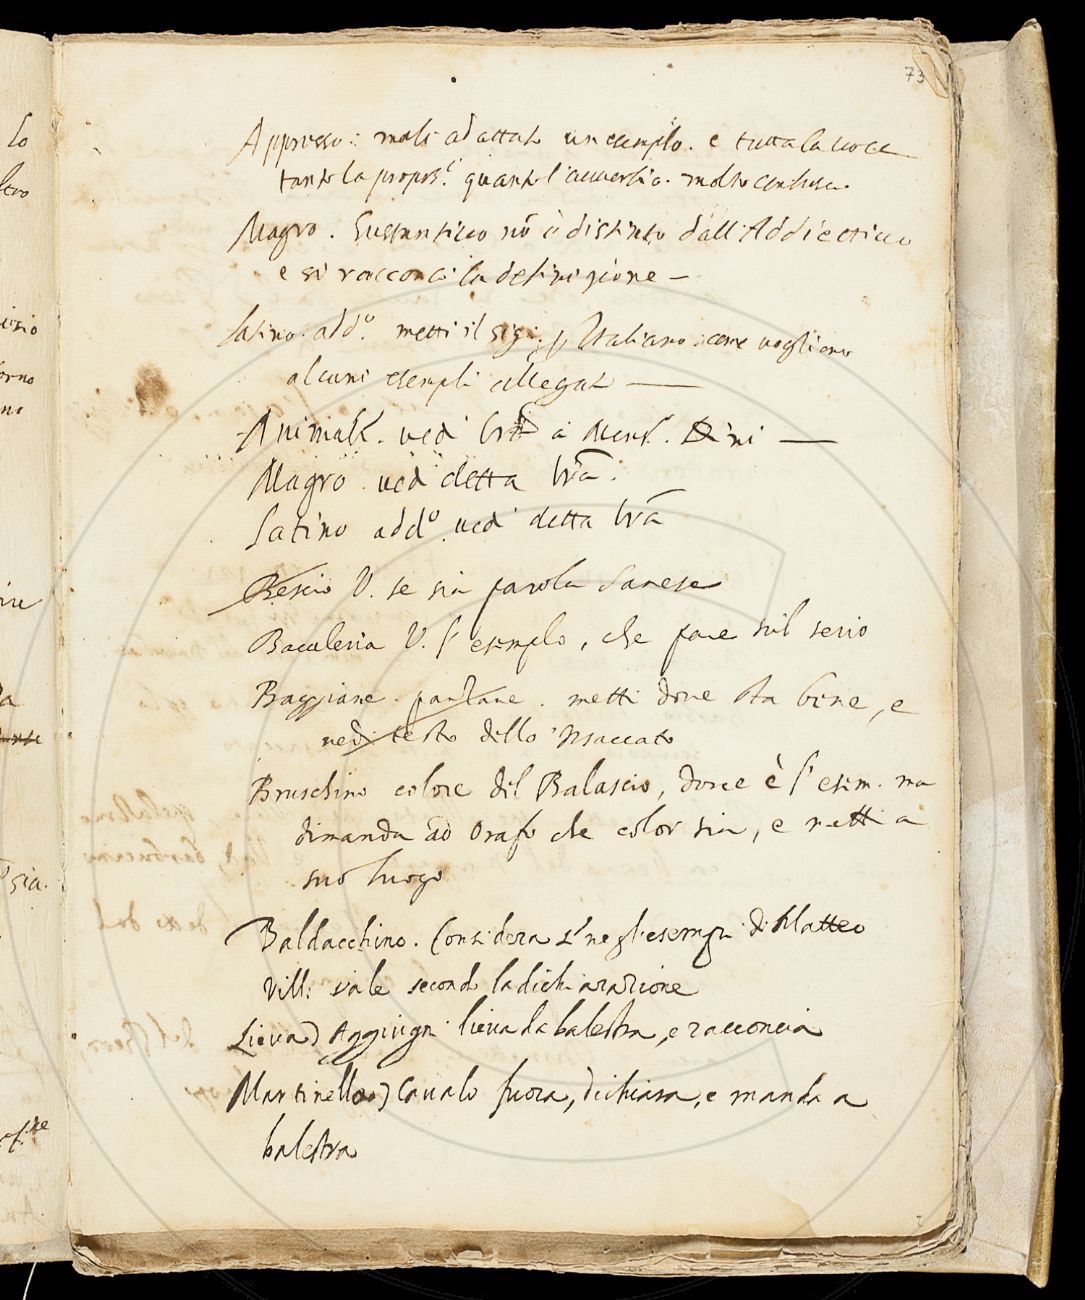 73
Appresso: mal' adattato un esempio. e tutta la voce
tanto la propos.e quanto l'avverbio. molto confusa.
Magro. Sustantivo nō è distinto dall'Addiettivo
e si racconci la definizione —
Latino. add.o metti il sig: Italiano. come vogliono
alcuni esempli allegati —
Animale. vedi lrā a Dini —
Magro. vedi detta lrā.
Latino add.o vedi detta lrā
Bescio V. se sia parola Sanese
Baculeria V. l'esemplo, che pare sul serio
Baggiane. pantane. metti dove sta bene, e
vedi testo dello 'nsaccato
Bruschino colore del Balascio, dove è l'esem. ma
dimanda ad Orafo che color sia, e metti a
suo luogo
Baldacchino. Considera se negli esempi di Matteo
Vill: vale secondo la dichiarazione
Lieva) Aggiugni lieva da balestra, e racconcia
Martinello) Cavalo fuora, dichiara, e manda a
balestra
lo
sia.